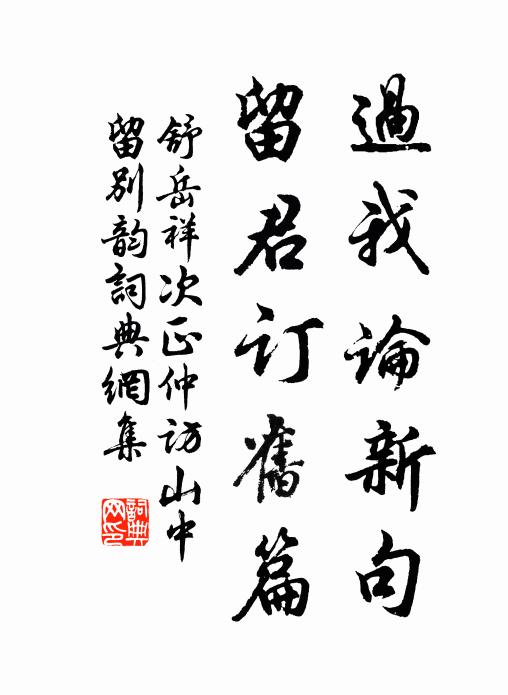 過我論新句
留君订舊篇
舒岳祥次正仲访山中
留别韵詞典網集
詞典
网印